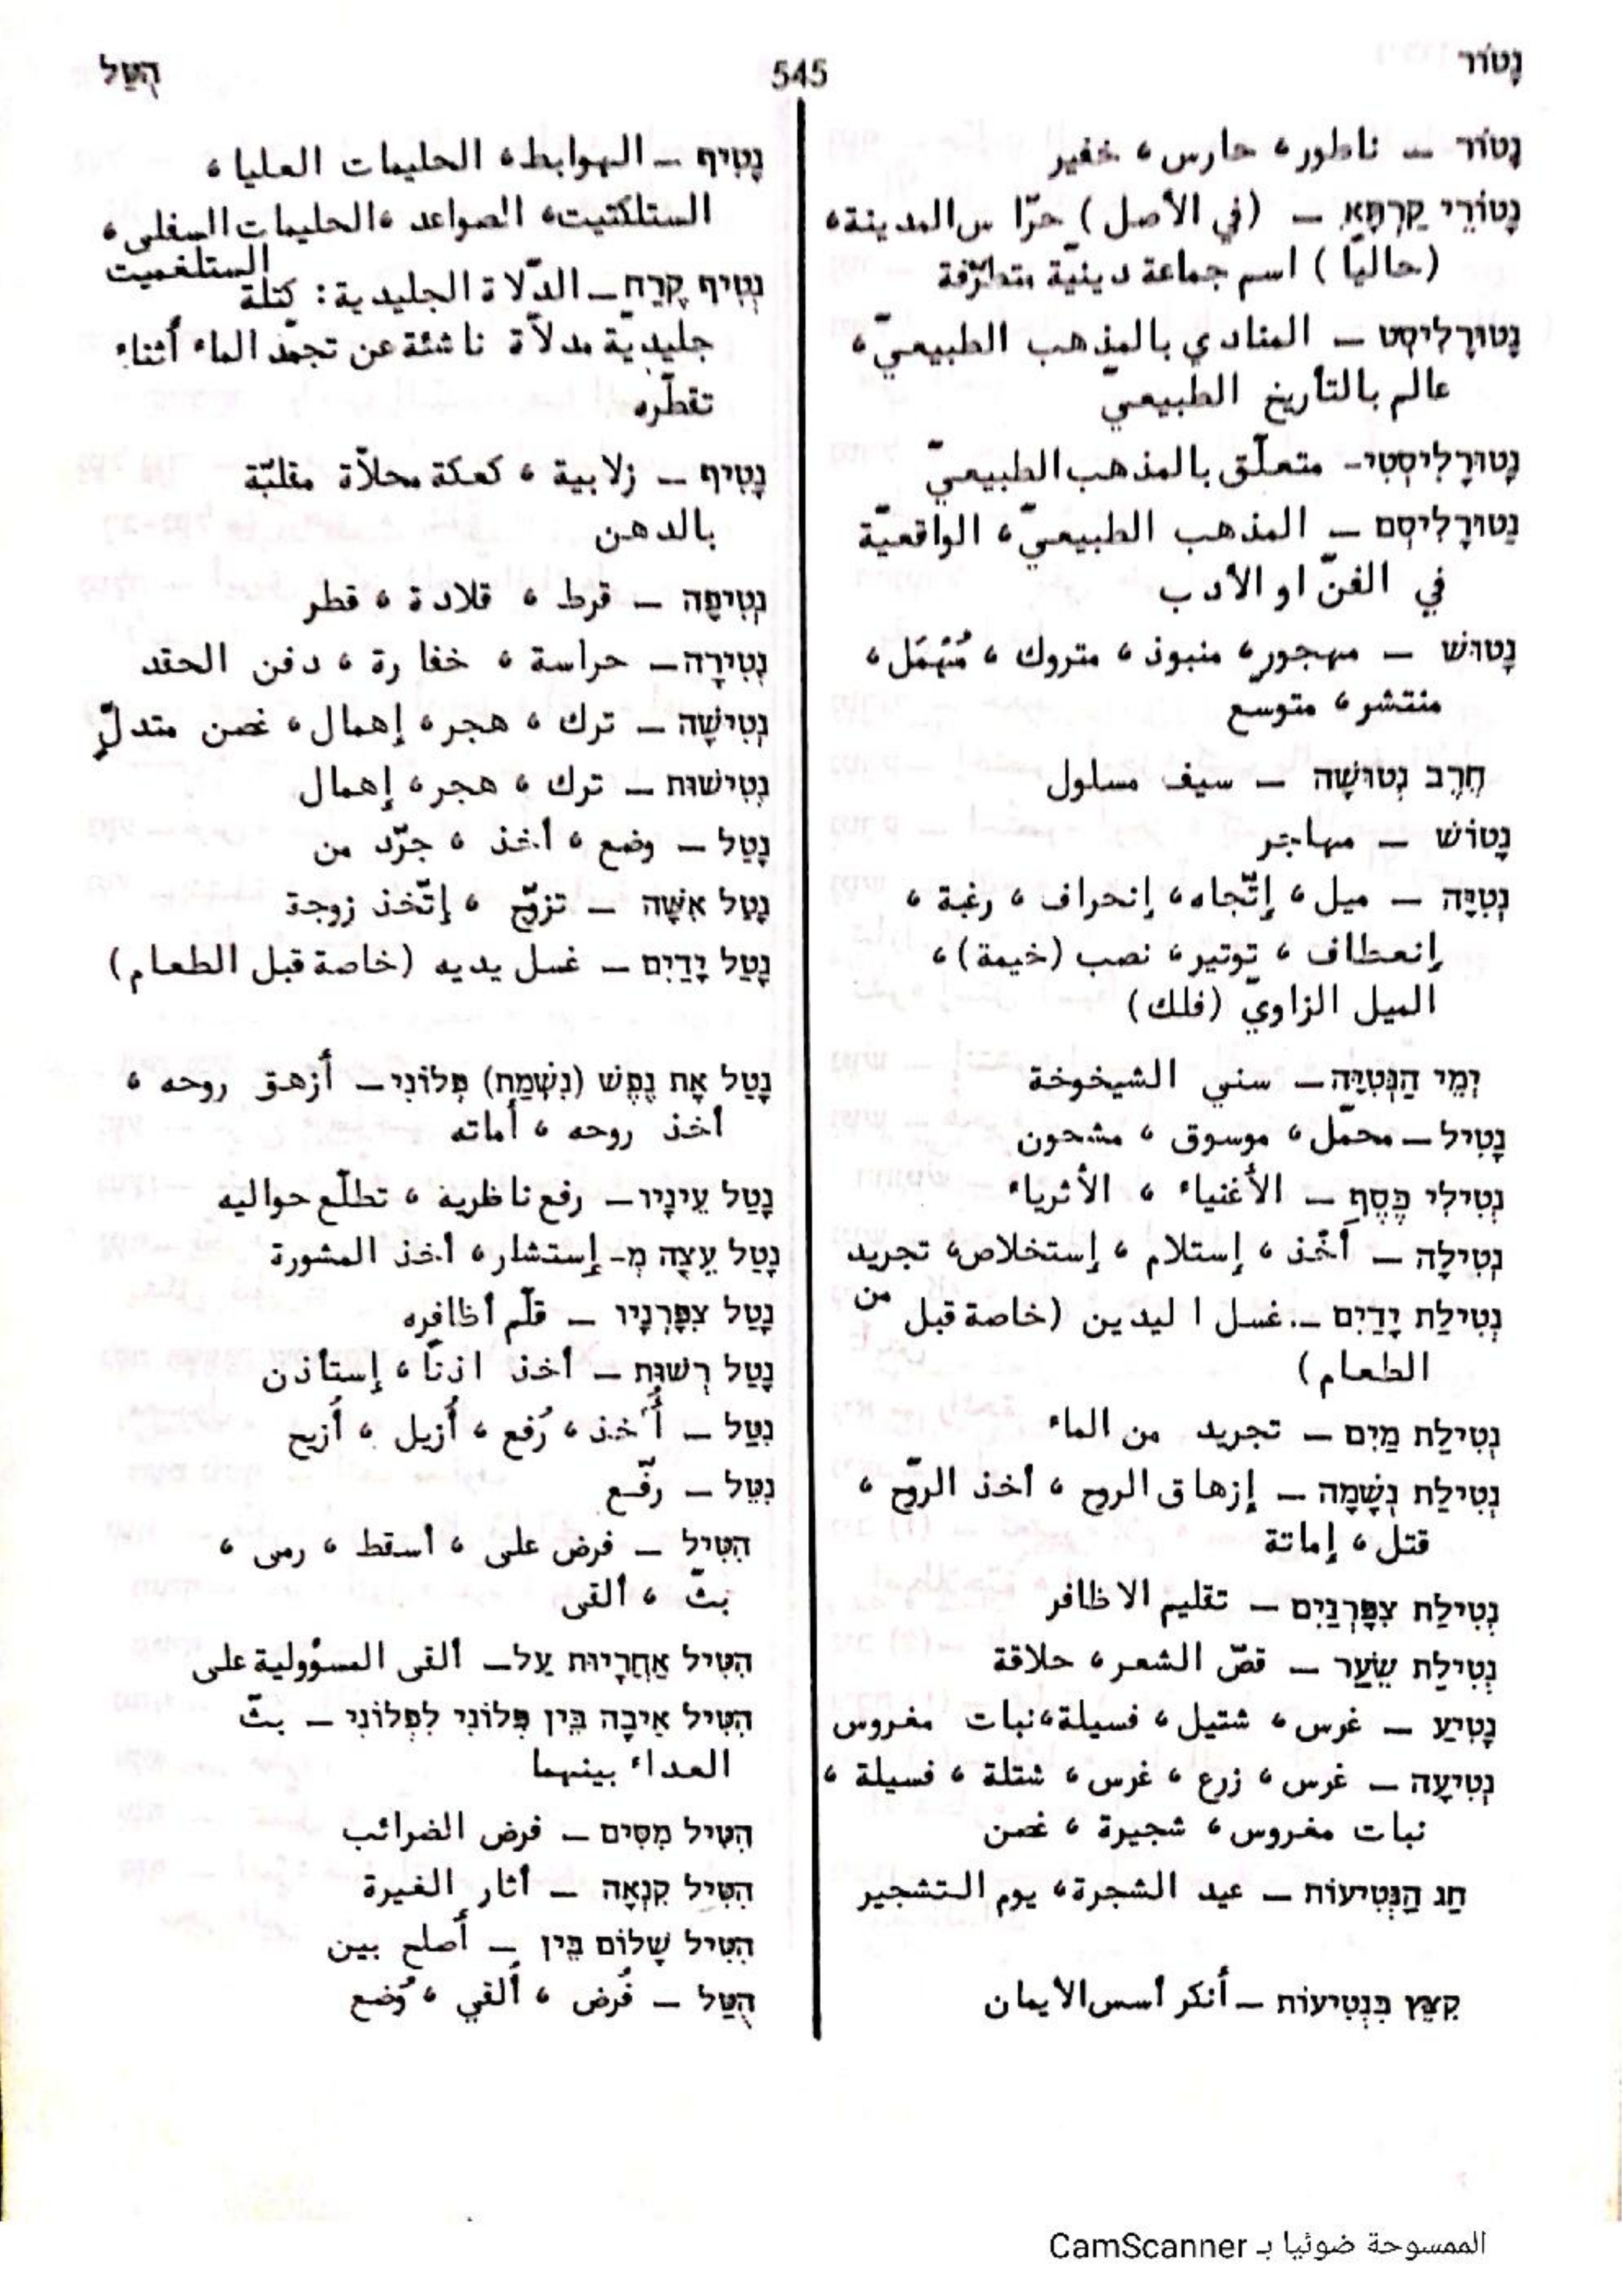 נָטוֹר
545
הֻטַּל
נָטוֹר — ناطور، حارس، خفير
נָטוֹרֵי קַרְתָּא — (في الأصل) حرّاس المدينة،
(حاليّا) اسم جماعة دينيّة متطرّفة
נָטוּרָלִיסְט — المنادي بالمذهب الطبيعيّ،
عالم بالتأريخ الطبيعيّ
נָטוּרָלִיסְטִי- متعلّق بالمذهب الطبيعيّ
נַטוּרָלִיסְם — المذهب الطبيعيّ، الواقعيّة
في الفنّ او الأدب
נָטוּשׁ — مهجور، منبوذ، متروك، مُهْمَل،
منتشر، متوسّع
חֶרֶב נְטוּשָׁה — سيف مسلول
נָטוֹשׁ — مهاجر
נְטִיָּה — ميل، إتّجاه، إنحراف، رغبة،
إنعطاف، توتير، نصب (خيمة)،
الميل الزاويّ (فلك)
יְמֵי הַנְּטִיָּה — سني الشيخوخة
נָטִיל — محمّل، موسوق، مشحون
נְטִילֵי כֶּסֶף — الأغنياء، الأثرياء
נְטִילָה — أَخْذ، إستلام، إستخلاص، تجريد من
נְטִילַת יָדַיִם —. غسل اليدين (خاصة قبل
الطعام)
נְטִילַת מַיִם — تجريد من الماء
נְטִילַת נְשָׁמָה — إزهاق الروح، أخذ الروّح،
قتل، إماتة
נְטִילַת צִפָּרְנַיִם — تقليم الاظافر
נְטִילַת שֵׂעַר — قصّ الشعر، حلاقة
נָטִיעַ — غرس، شتيل، فسيلة، نبات مغروس
נְטִיעָה — غرس، زرع، غرس، شتلة، فسيلة،
نبات مغروس، شجيرة، غصن
חַג הַנְּטִיעוֹת — عيد الشجرة، يوم التشجير
קִצֵּץ בִּנְטִיעוֹת — أنكر أسس الأيمان
נָטִיף — الهوابط، الحليمات العليا،
الستلكتيت، الصواعد، الحليمات السفلى،
الستلغميت
נְטִיף קֶרַח — الدّلاة الجليدية: كتلة
جليديّة مدلاّة ناشئة عن تجمّد الماء أثناء
تقطّره
נָטִיף — زلابية، كعكة محلاّة مقليّة
بالدهن
נְטִיפָה — قرط، قلادة، قطر
נְטִירָה — حراسة، خفارة، دفن الحقد
נְטִישָׁה — ترك، هجر، إهمال، غصن متدلٍّ
נְטִישׁוּת — ترك، هجر، إهمال
נָטַל — وضع، أخذ، جرّد من
נָטַל אִשָּׁה — تزوّج، إتّخذ زوجة
נָטַל יָדַיִם — غسل يديه (خاصة قبل الطعام)
נָטַל אֶת נֶפֶשׁ (נִשְׁמַת) פְּלוֹנִי — أزهق روحه،
أخذ روحه، أماته
נָטַל עֵינָיו — رفع ناظريه، تطلّع حواليه
נָטַל עֵצָה מְ- إستشار، أخذ المشورة
נָטַל צִפָּרְנָיו — قلّم أظافره
נָטַל רְשׁוּת — أخذ اذنّا، إستأذن
נִטַּל — أُخذ، رُفع، أُزيل، أُزيح
נִטֵּל — رفّع
הִטִּיל — فرض على، أسقط، رمى،
بثّ، ألقى
הִטִּיל אַחֲרָיוּת עַל — ألقى المسؤولية على
הִטִּיל אֵיבָה בֵּין פְּלוֹנִי לִפְלוֹנִי — بثّ
العداء بينهما
הִטִּיל מִסִּים — فرض الضرائب
הִטִּיל קִנְאָה — أثار الغيرة
הִטִּיל שָׁלוֹם בֵּין — أصلح بين
הֻטַּל — فُرض، أُلقي، وُضع
الممسوحة ضوئيا بـ CamScanner